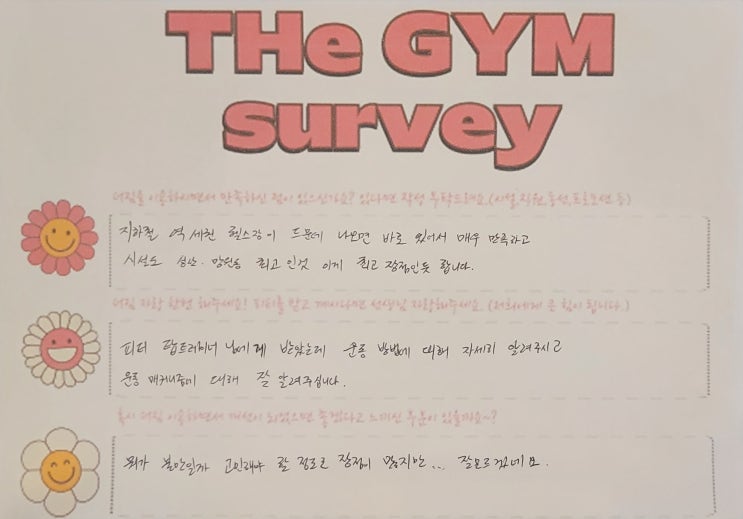 THe GYM
survey
더짐을 이용하시면서 만족하신 점이 있으신가요? 있다면 작성 부탁드려요.(시설,직원,동선,프로모션 등)
지하철 역 세권 헬스장이 드문데 나오면 바로 있어서 매우 만족하고
시설도 성산·망원동 최고 인것 이게 최고 장점인듯 합니다.
더짐 자랑 한번 해주세요! 피티를 받고 계시다면 선생님 자랑해주세요. (저희에게 큰 힘이 됩니다.)
피티 팀트레이너 님에게 받았는데 운동 방법에 대해 자세히 알려주시고
운동 매커니즘에 대해 잘 알려주십니다.
혹시 더짐 이용하면서 개선이 되었으면 좋겠다고 느끼신 부분이 있을까요~?
뭐가 불만일까 고민해야 할 정도로 장점이 많지만... 잘모르겠네요.